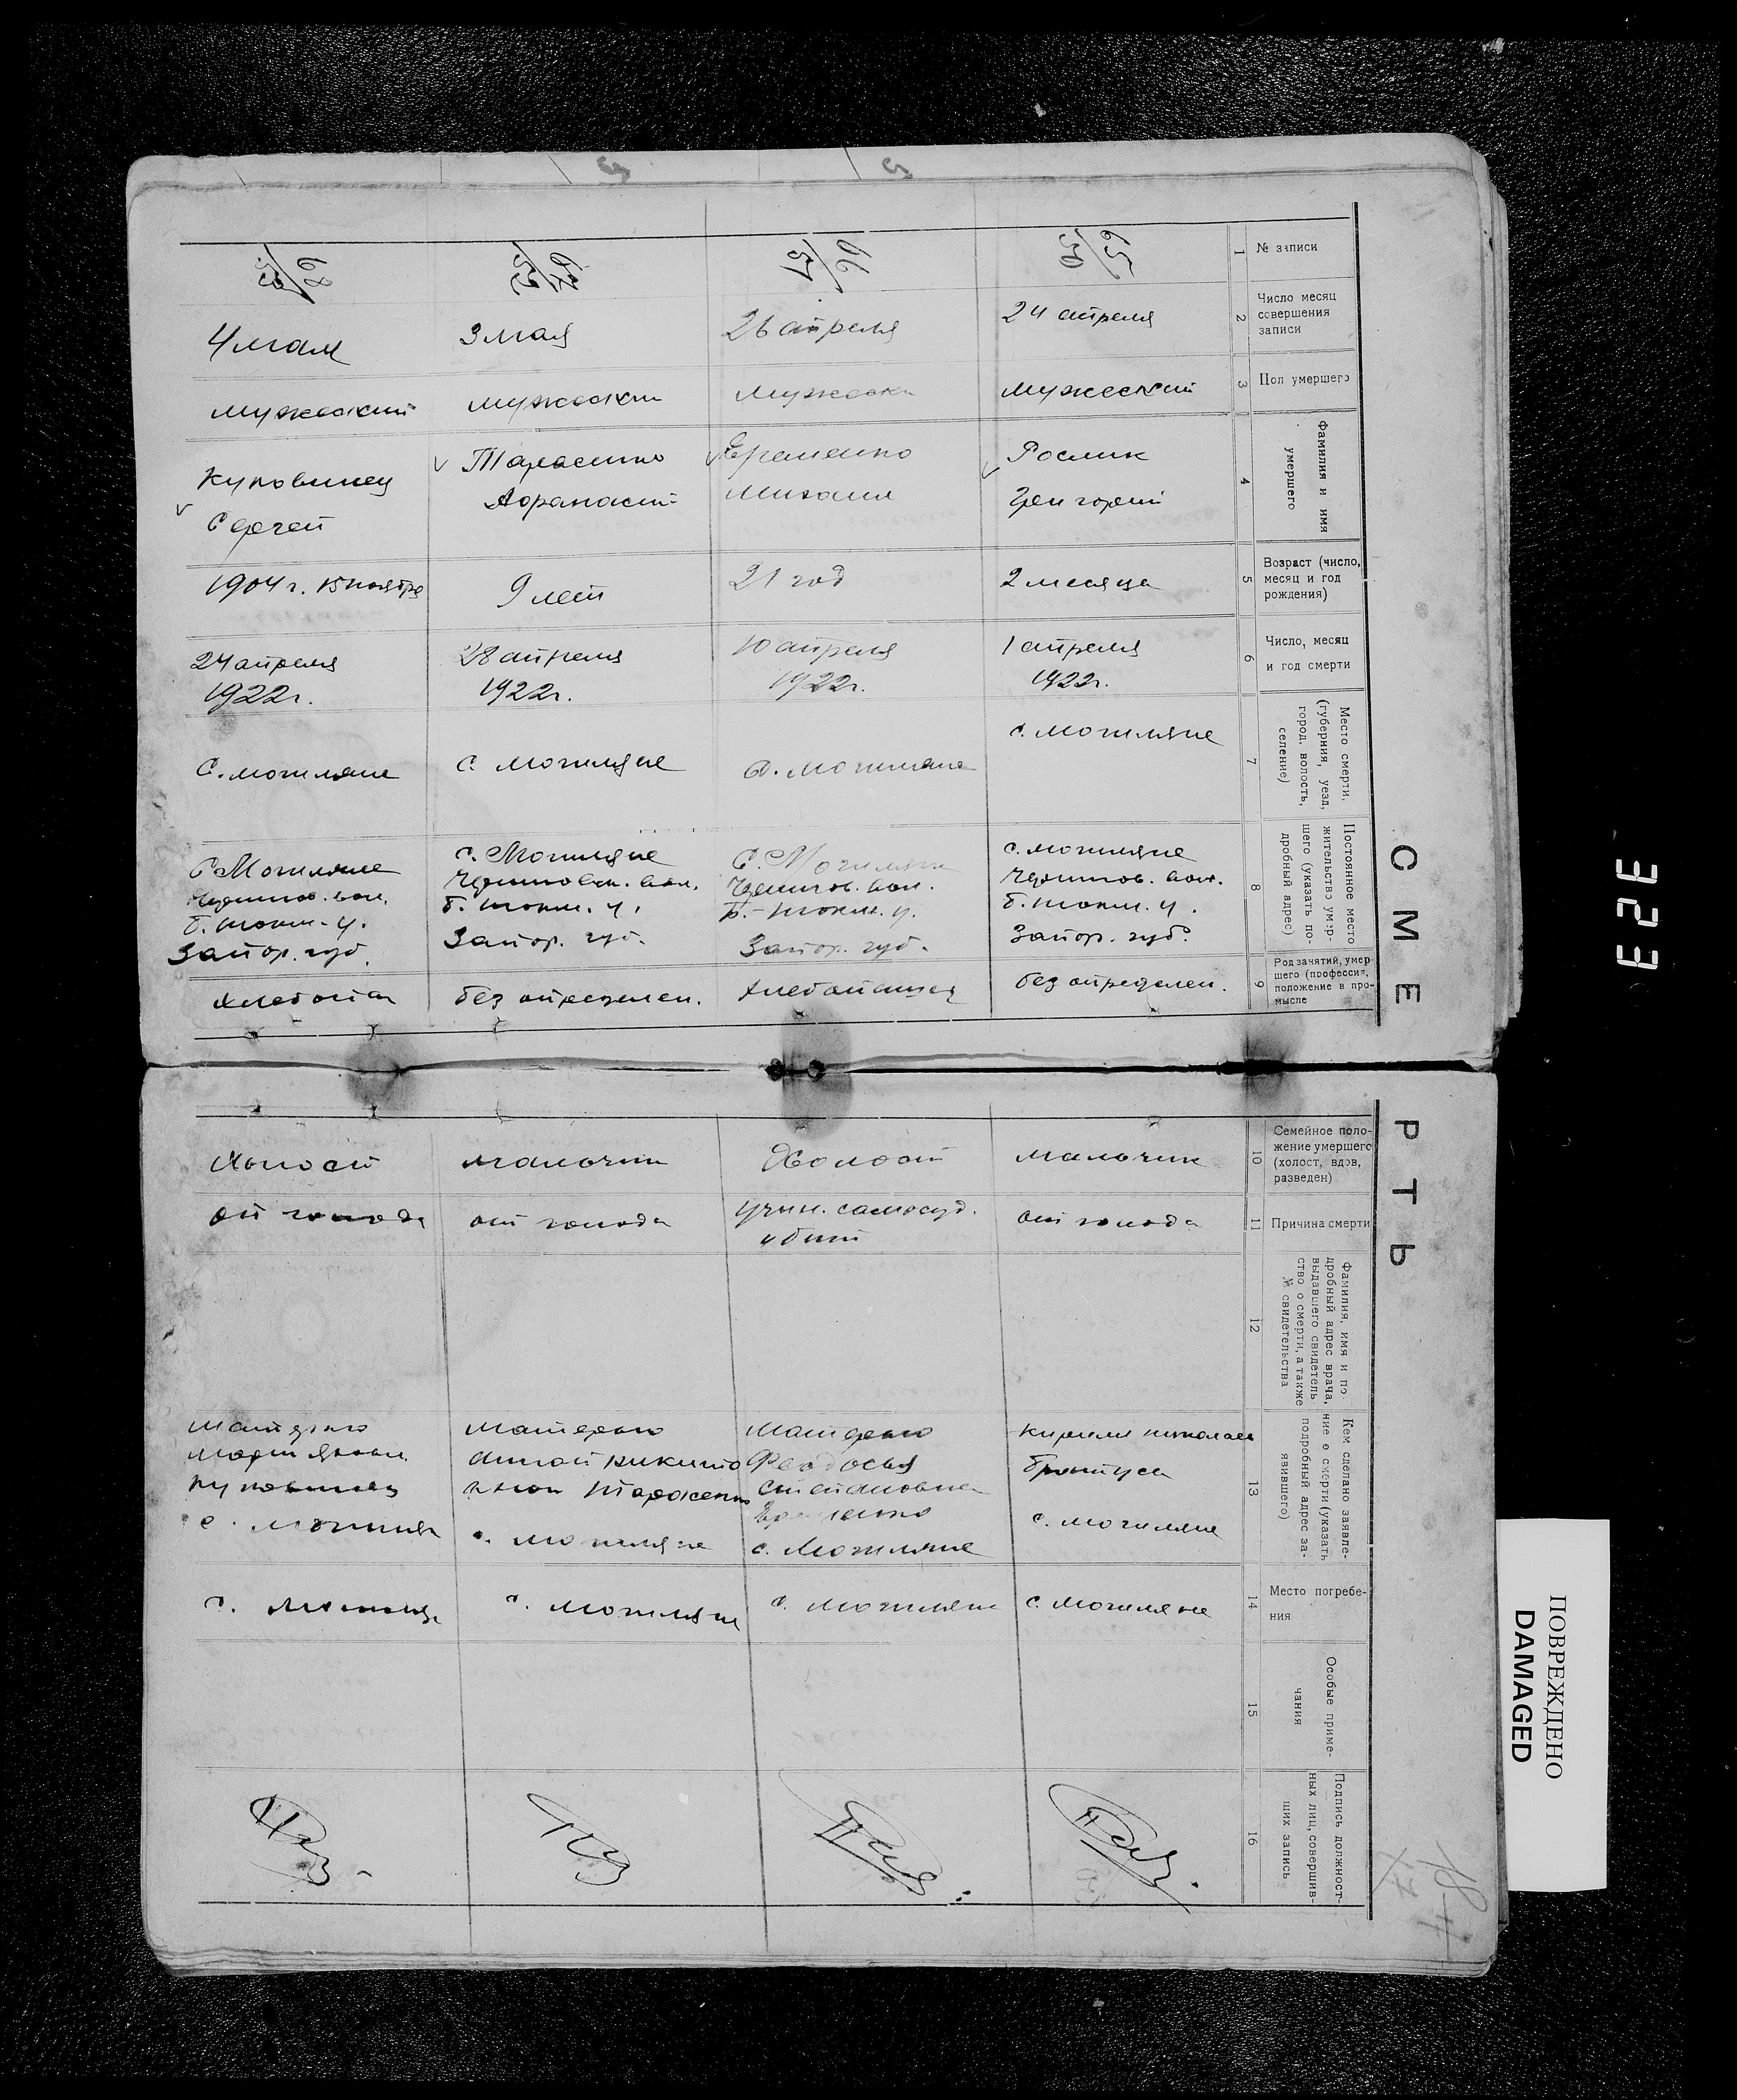 СМЕРТЬ
1
№ записи
2
Число месяц
совершения
записи
24 апреля
26 апреля
3 мая
4 мая
3
Пол умершего
мужеский
мужески
мужески
мужеский
4
Фамилия и имя
умершего
Рослик
Григорий
Еременко
Михаил
Тарасенко
Афанасий
Куповинец
Сергей
5
Возраст (число,
месяц и год
рождения)
2 месяца
21 год
9 лет
1904 г. 15 ноября
6
Число, месяц
и год смерти
1 апреля
1922г.
10 апреля
1922г.
28 апреля
1922г.
24 апреля
1922г.
7
Место смерти.
(губерния, уезд,
город, волость,
селение)
с. Могиляне
с. Могиляне
с. Могиляне
с. Могиляне
8
Постоянное место
жительство умер-
шего (указать по-
дробный адрес)
с. Могиляне
Чернигов. вол.
б. токм. у.
Запор. губ.
С. Могиляне
Чернигов. вол.
Б.-токм. у.
Запор. губ.
с. Могиляне
Черниговск. вол.
б. токм. у.
Запор. губ.
С Могиляне
Чернигов. вол.
б. токм. у.
Запор. губ.
9
Род занятий, умер
шего (профессия,
положение в про-
мысле
без определен.
хлебопашец
без определен.
хлебопаш
10
Семейное поло-
жение умершего
(холост, вдов,
разведен)
мальчик
Холост
мальчик
Холост
11
Причина смерти
от голода
учин. самосуд.
убит
от голода
от голода
12
Фамилия, имя и по
дробный адрес врача,
выдавшего свидетель
ство о смерти, а также
№ свидетельства
13
Кем сделано заявле-
ние о смерти (указать
подробный адрес за-
явившего)
Кирилл Николаев
с. Могиляне
Матерью
Феодосья
Степановна
Еременко
с. Могиляне
матерью
Анной Никито
с. Могиляне
Матерью
Куповинец
с. Могиляне
14
Место погребе-
ния
с. Могиляне
с. Могиляне
с. Могиляне
с. Могиляне
15
Особые приме-
чания
16
Подпись должност-
ных лиц, совершив-
ших запись
184
323
ПОВРЕЖДЕНО
DAMAGED